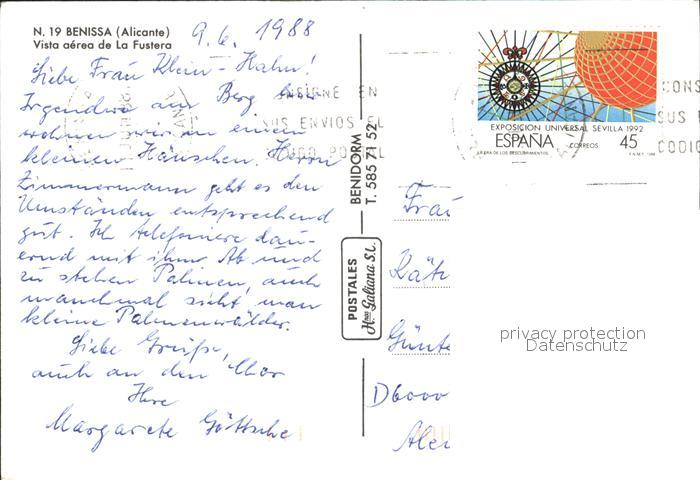 N. 19 BENISSA (Alicante)
Vista aérea de La Fustera
9.6. 1988
Liebe Frau Klein-Hahn!
Irgendwo am Berg hier
wohnen wir in einem
kleinen Häuschen. Herrn
Zimmermann geht es den
Umständen entsprechend
gut. Ich telefoniere dau-
ernd mit ihm. Ab und
zu stehen Palmen, auch
manchmal sieht man
kleine Palmenwälder.
Liebe Grüße,
auch an den Chor
Ihre
Margarete Göttsche
BENIDORM
T. 585 71 52
POSTALES
Hnos Galiana S.L.
CONSIGNE EN
SUS ENVIOS EL
CODIGO POSTAL
EXPOSICION UNIVERSAL SEVILLA 1992
ESPAÑA CORREOS 45
LA ERA DE LOS DESCUBRIMIENTOS F.N.M.T. 1988
CONS
SUS
CODIG
Frau
Kät
Günte
D6000
privacy protection
Datenschutz